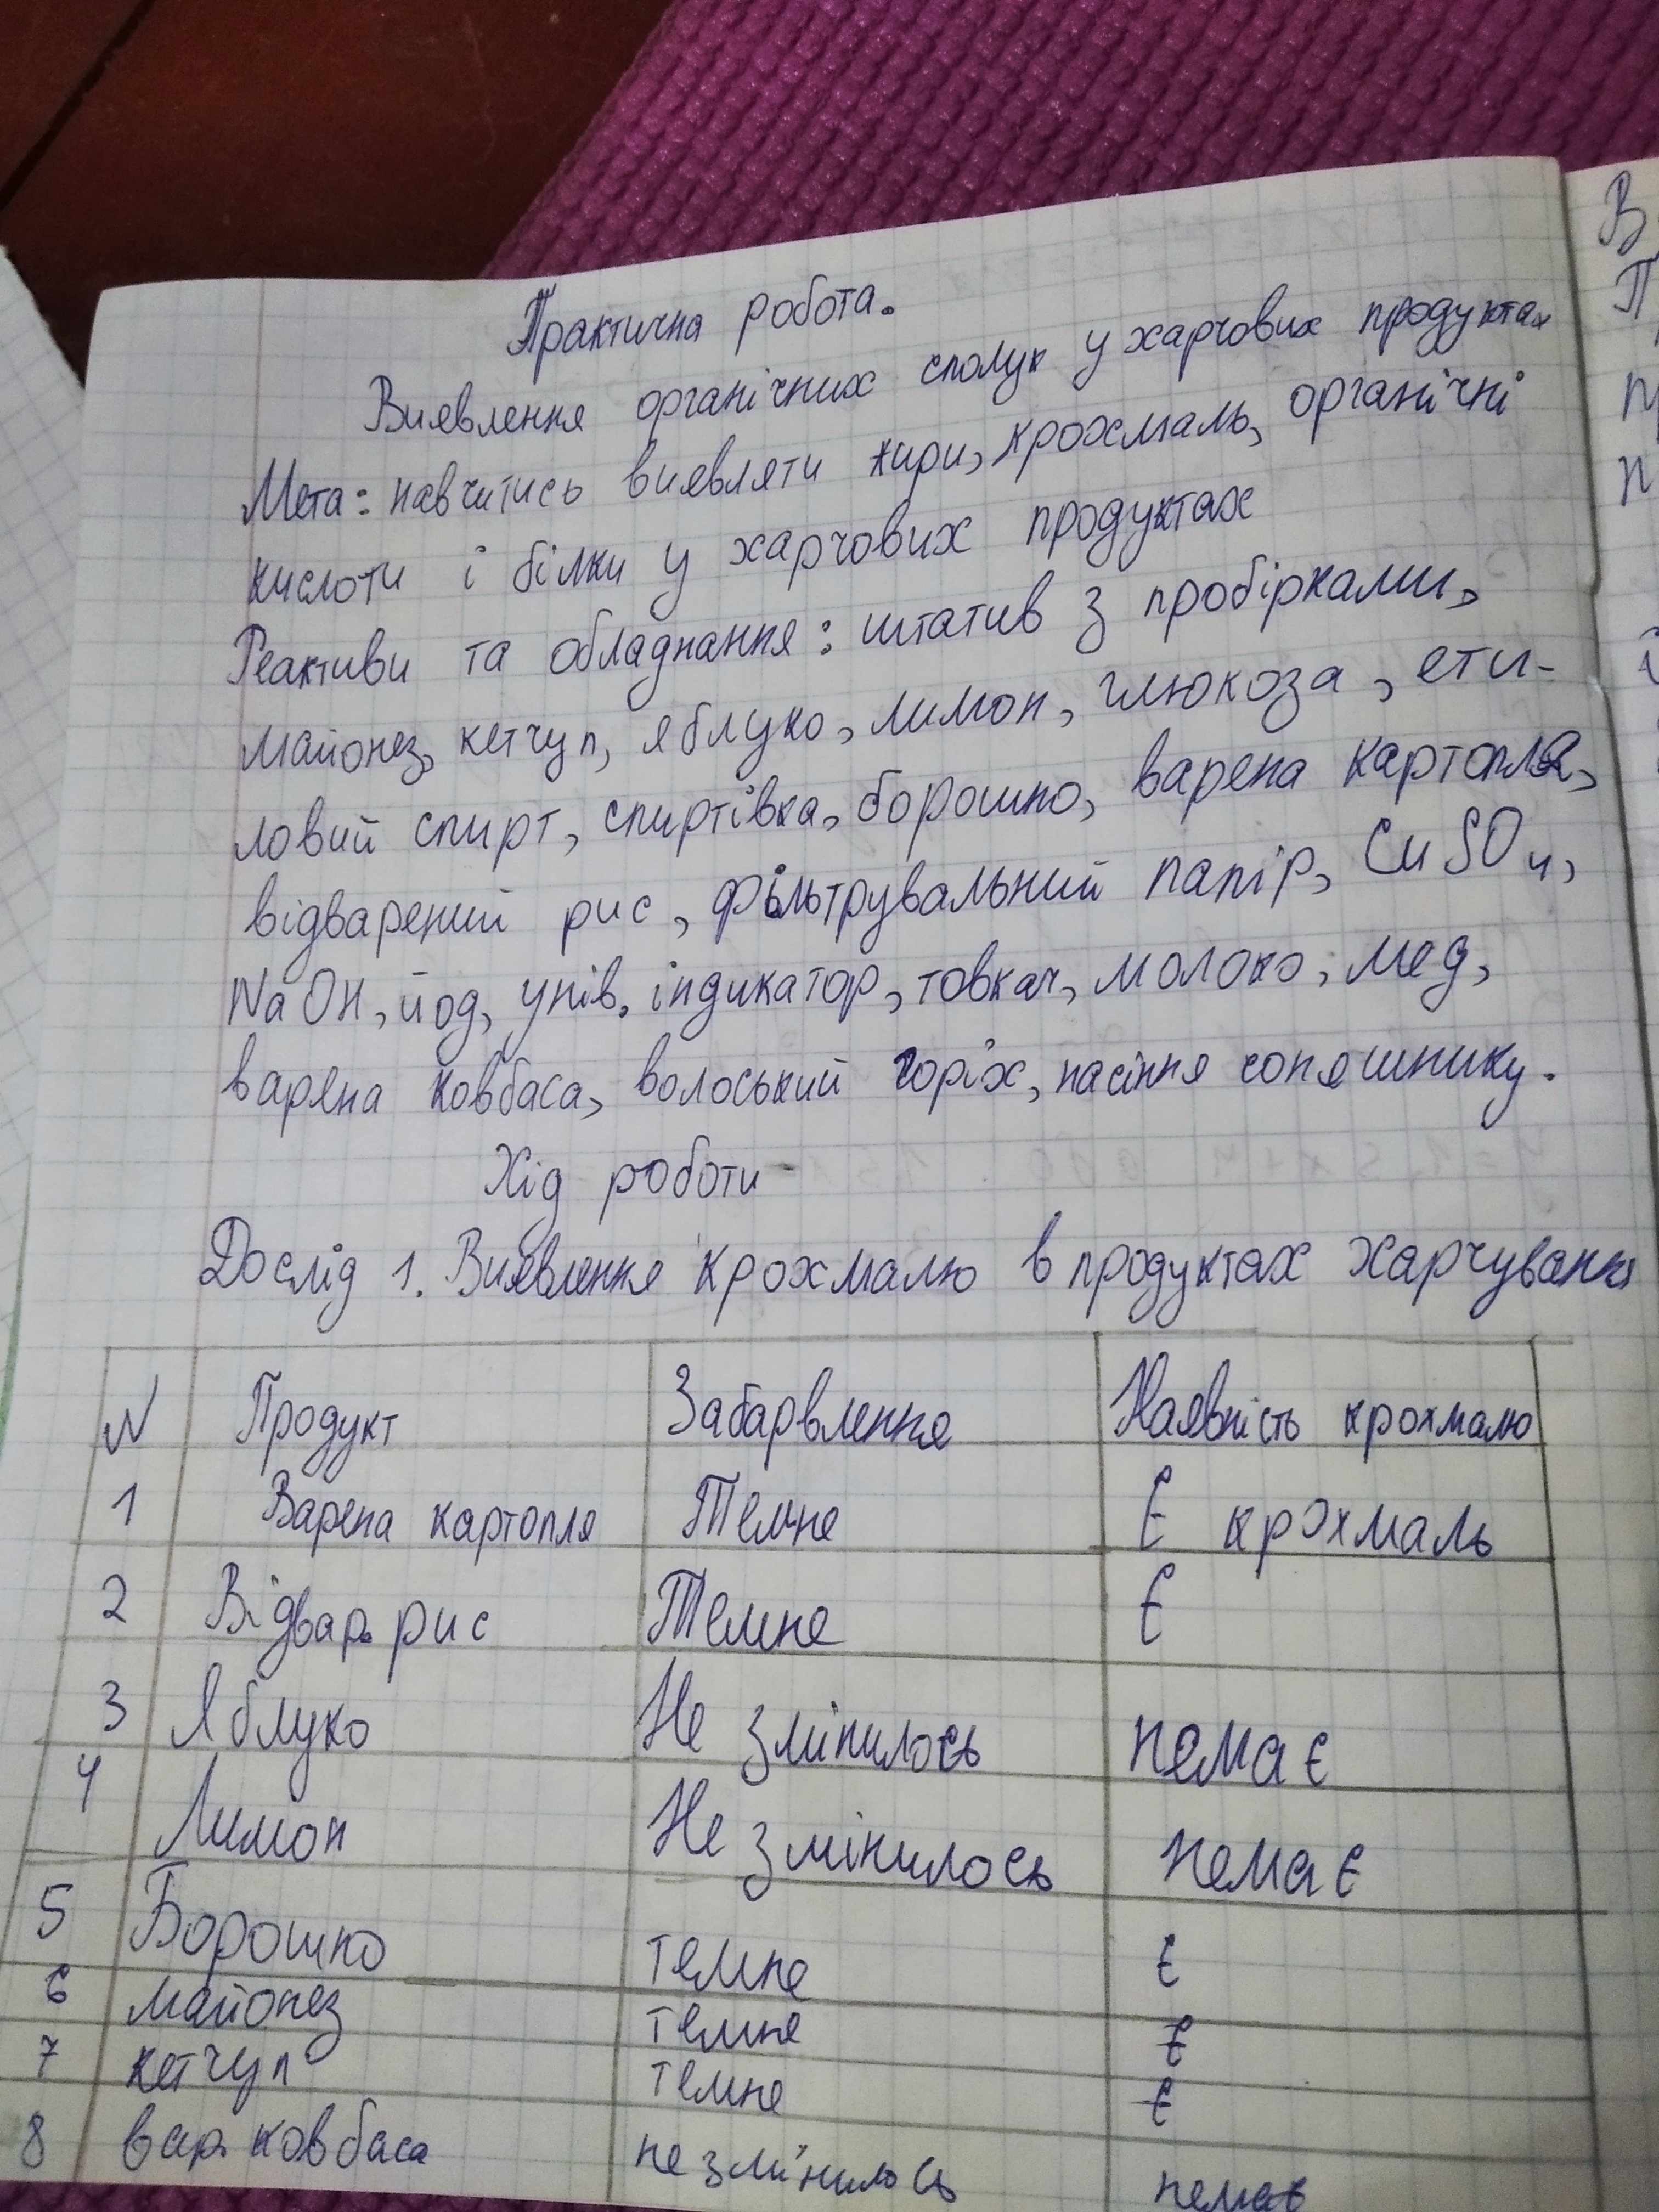 Практична робота.
Виявлення органічних сполук у харчових продуктах
Мета: навчитись виявляти жири, крохмаль, органічні
кислоти і білки у харчових продуктах
Реактиви та обладнання: штатив з пробірками,
майонез, кетчуп, яблуко, лимон, глюкоза, ети-
ловий спирт, спиртівка, борошно, варена картопля,
відварений рис, фільтрувальний папір, CuSO4,
NaOH, йод, унів. індикатор, товкач, молоко, мед,
варена ковбаса, волоський горіх, насіння соняшнику.
Хід роботи
Дослід 1. Виявлення крохмалю в продуктах харчування
N Продукт Забарвлення Наявність крохмалю
1 Варена картопля Темне Є крохмаль
2 Відвар. рис Темне Є
3 Яблуко Не змінилось немає
4 Лимон Не змінилось немає
5 Борошно темне є
6 майонез темне є
7 кетчуп темне є
8 вар. ковбаса не змінилось немає